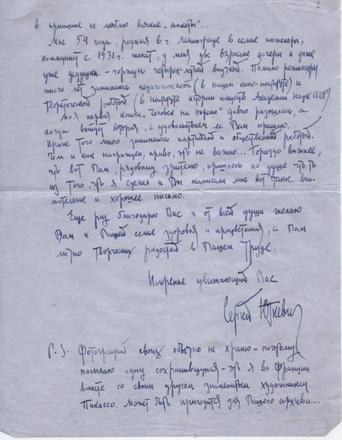 в принципе не люблю всякие „анкеты“...
Мне 54 года, родился в г. Ленинграде в семье инженера,
коммунист с 1939г. женат, у меня две взрослые дочери и даже
уже дедушка - горжусь четырех-летней внучкой. Помимо режиссуры
много лет занимаюсь педагогической (в нашем кино-институте) и
теоретической работой (в институте истории искусств Академии наук СССР)
Моя первая книга „Человек на экране“ давно разошлась, а
когда выйдет вторая, с удовольствием ее Вам пришлю.
Кроме того много занимаюсь партийной и общественной работой.
Чем и как награжден, право, это не важно... Гораздо важнее,
что вот Вам, рядовому зрителю пришлось по душе что-то
из того, что я сделал и Вы написали мне вот такое вни-
мательное и хорошее письмо.
Еще раз благодарю Вас и от всей души желаю
Вам и Вашей семье здоровья и процветания, а Вам
лично творческих радостей в Вашем труде.
Искренне уважающий Вас
Сергей Юткевич
P.S. Фотографий своих обычно не храню - поэтому
посылаю одну сохранившуюся - это я во Франции
вместе со своим другом знаменитым художником
Пикассо. может быть пригодится для Вашего архива...